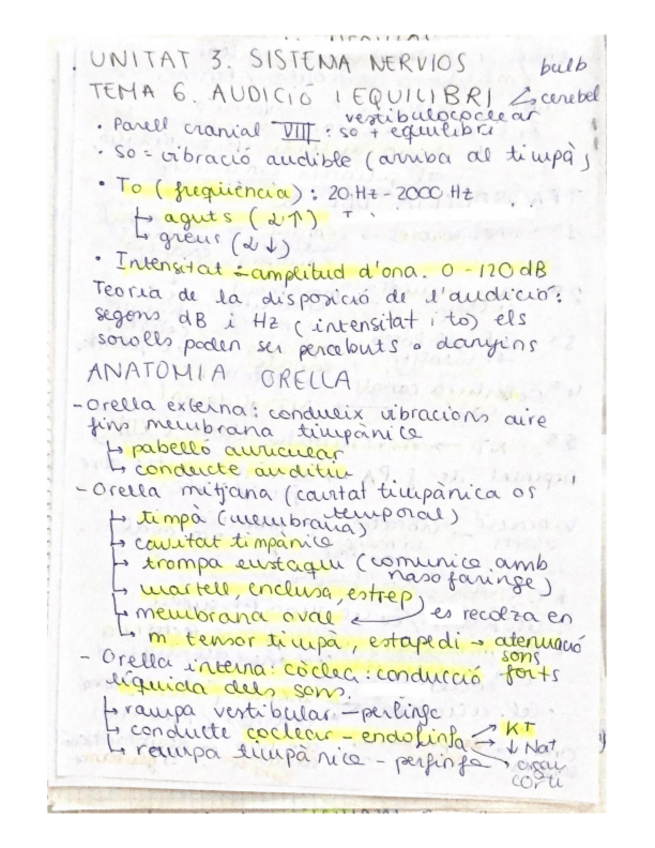 UNITAT 3. SISTEMA NERVIOS
bulb
TEMA 6. AUDICIÓ I EQUILIBRI
cerebel
vestibulococlear
• Parell cranial VIII: so + equilibri
• So = vibració audible (arriba al timpà)
• To (freqüència): 20 Hz - 2000 Hz
↳ aguts (λ↑)
↳ greus (λ↓)
• Intensitat = amplitud d'ona. 0 - 120 dB
Teoria de la disposició de l'audició:
segons dB i Hz (intensitat i to) els
sorolls poden ser percebuts o danyins
ANATOMIA ORELLA
- Orella externa: condueix vibracions aire
fins membrana timpànica
↳ pabelló auricular
↳ conducte auditiu
- Orella mitjana (cavitat timpànica os
temporal)
↳ timpà (membrana)
↳ cavitat timpànica
↳ trompa eustaqui (comunica amb
nasofaringe)
↳ martell, enclusa, estrep
↳ membrana oval ← es recolza en
↳ m. tensor timpà, estapedi → atenuació
sons
forts
- Orella interna: còclea: conducció
líquida dels sons.
↳ rampa vestibular - perlinfa
↳ conducte coclear - endolinfa
K↑
↓ Na+
↳ rampa timpànica - perlinfa
organ
corti